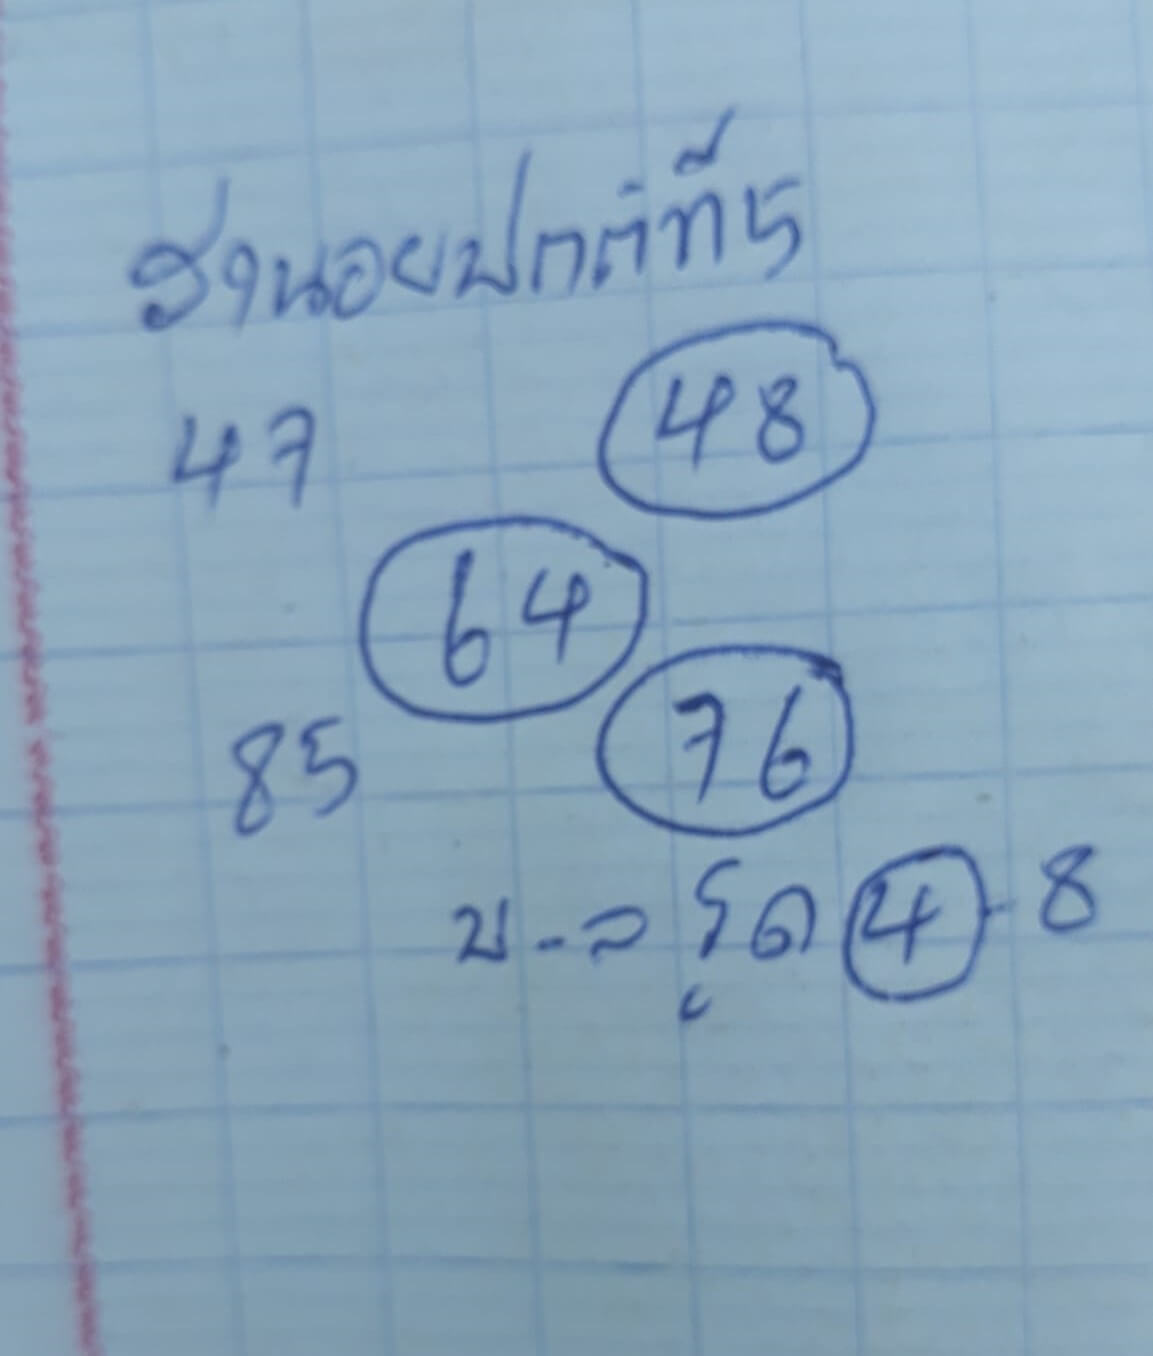 ฮานอยปกติที่5
47 48
64
85 76
บ-ล รูด 4-8